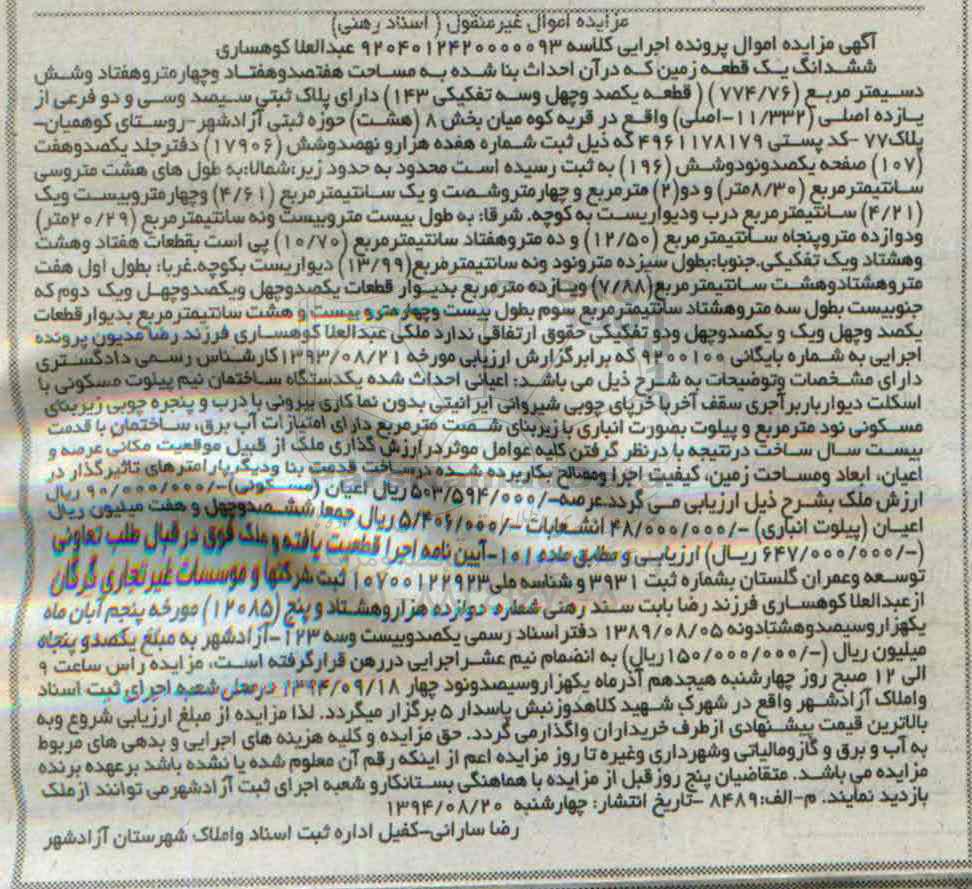 مزایده اموال غیرمنقول ( اسناد رهنی)
آگهی مزایده اموال پرونده اجرایی کلاسه ۹۲۰۴۰۱۲۴۲۰۰۰۰۰۹۳ عبدالعلا کوهساری
ششدانگ یک قطعه زمین که درآن احداث بنا شده به مساحت هفتصدوهفتاد وچهارمتروهفتاد وشش
دسیمتر مربع (۷۷۴/۷۶) ( قطعه یکصد وچهل وسه تفکیکی ۱۴۳) دارای پلاک ثبتی سیصد وسی و دو فرعی از
یازده اصلی (۱۱/۳۳۲-اصلی) واقع در قریه کوه میان بخش ۸ (هشت) حوزه ثبتی آزادشهر-روستای کوهمیان-
پلاک۷۷ -کد پستی ۴۹۶۱۱۷۸۱۷۹ که ذیل ثبت شماره هفده هزارو نهصدوشش (۱۷۹۰۶) دفترجلد یکصدوهفت
(۱۰۷) صفحه یکصدونودوشش (۱۹۶) به ثبت رسیده است محدود به حدود زیر:شمالا:به طول های هشت متروسی
سانتیمترمربع (۸/۳۰متر) و دو(۲) مترمربع و چهارمتروشصت و یک سانتیمترمربع (۴/۶۱) وچهارمتروبیست ویک
(۴/۲۱) سانتیمترمربع درب ودیواریست به کوچه. شرقا: به طول بیست متروبیست ونه سانتیمترمربع (۲۰/۲۹متر)
ودوازده متروپنجاه سانتیمترمربع (۱۲/۵۰) و ده متروهفتاد سانتیمترمربع (۱۰/۷۰) پی است بقطعات هفتاد وهشت
وهشتاد ویک تفکیکی.جنوبا:بطول سیزده مترونود ونه سانتیمترمربع(۱۳/۹۹) دیواریست بکوچه.غربا: بطول اول هفت
متروهشتادوهشت سانتیمترمربع(۷/۸۸) ویازده مترمربع بدیوار قطعات یکصدوچهل ویکصدوچهل ویک دوم که
جنوبیست بطول سه متروهشتاد سانتیمترمربع سوم بطول بیست وچهارمترو بیست و هشت سانتیمترمربع بدیوارقطعات
یکصد وچهل ویک و یکصدوچهل ودو تفکیکی حقوق ارتفاقی ندارد ملکی عبدالعلا کوهساری فرزند رضا مدیون پرونده
اجرایی به شماره بایگانی ۹۲۰۰۱۰۰ که برابرگزارش ارزیابی مورخه ۱۳۹۳/۰۸/۲۱کارشناس رسمی دادگستری
دارای مشخصات وتوضیحات به شرح ذیل می باشد: اعیانی احداث شده یکدستگاه ساختمان نیم پیلوت مسکونی با
اسکلت دیوارباربرآجری سقف آخربا خرپای چوبی شیروانی ایرانیتی بدون نما کاری بیرونی با درب و پنجره چوبی زیربنای
مسکونی نود مترمربع و پیلوت بصورت انباری با زیربنای شصت مترمربع دارای امتیازات آب برق، ساختمان با قدمت
بیست سال ساخت درنتیجه با درنظر گرفتن کلیه عوامل موثردرارزش گذاری ملک از قبیل موقعیت مکانی عرصه و
اعیان، ابعاد ومساحت زمین، کیفیت اجرا ومصالح بکاربرده شده درساخت قدمت بنا ودیگرپارامترهای تاثیرگذار در
ارزش ملک بشرح ذیل ارزیابی می گردد.عرصه-/۵۰۳/۵۹۴/۰۰۰ ریال اعیان (مسکونی)-/۹۰/۰۰۰/۰۰۰ ریال
اعیان (پیلوت انباری) -/۴۸/۰۰۰/۰۰۰ انشعابات -/۵/۴۰۶/۰۰۰ ریال جمعا ششصدوچهل و هفت میلیون ریال
(-/۶۴۷/۰۰۰/۰۰۰ ریال) ارزیابی و مطابق ماده ۱۰۱-آیین نامه اجرا قطعیت یافته و ملک فوق در قبال طلب تعاونی
توسعه وعمران گلستان بشماره ثبت ۳۹۳۱ و شناسه ملی۱۰۷۰۰۱۲۲۹۲۳ ثبت شرکتها و موسسات غیرتجاری گرگان
ازعبدالعلا کوهساری فرزند رضا بابت سند رهنی شماره دوازده هزاروهشتاد و پنج (۱۲۰۸۵) مورخه پنجم آبان ماه
یکهزاروسیصدوهشتادونه ۱۳۸۹/۰۸/۰۵ دفتراسناد رسمی یکصدوبیست وسه ۱۲۳-آزادشهر به مبلغ یکصدو پنجاه
میلیون ریال (-/۱۵۰/۰۰۰/۰۰۰ریال) به انضمام نیم عشراجرایی دررهن قرارگرفته است، مزایده راس ساعت ۹
الی ۱۲ صبح روز چهارشنبه هیجدهم آذرماه یکهزاروسیصدونود چهار ۱۳۹۴/۰۹/۱۸ درمحل شعبه اجرای ثبت اسناد
واملاک آزادشهر واقع در شهرک شهید کلاهدوزنبش پاسدار ۵ برگزار میگردد. لذا مزایده از مبلغ ارزیابی شروع وبه
بالاترین قیمت پیشنهادی ازطرف خریداران واگذارمی گردد. حق مزایده و کلیه هزینه های اجرایی و بدهی های مربوط
به آب و برق و گازومالیاتی وشهرداری وغیره تا روز مزایده اعم از اینکه رقم آن معلوم شده یا نشده باشد برعهده برنده
مزایده می باشد. متقاضیان پنج روزقبل از مزایده با هماهنگی بستانکارو شعبه اجرای ثبت آزادشهرمی توانند ازملک
بازدید نمایند. م-الف:۸۴۸۹ -تاریخ انتشار: چهارشنبه ۱۳۹۴/۰۸/۲۰
رضا سارانی-کفیل اداره ثبت اسناد واملاک شهرستان آزادشهر